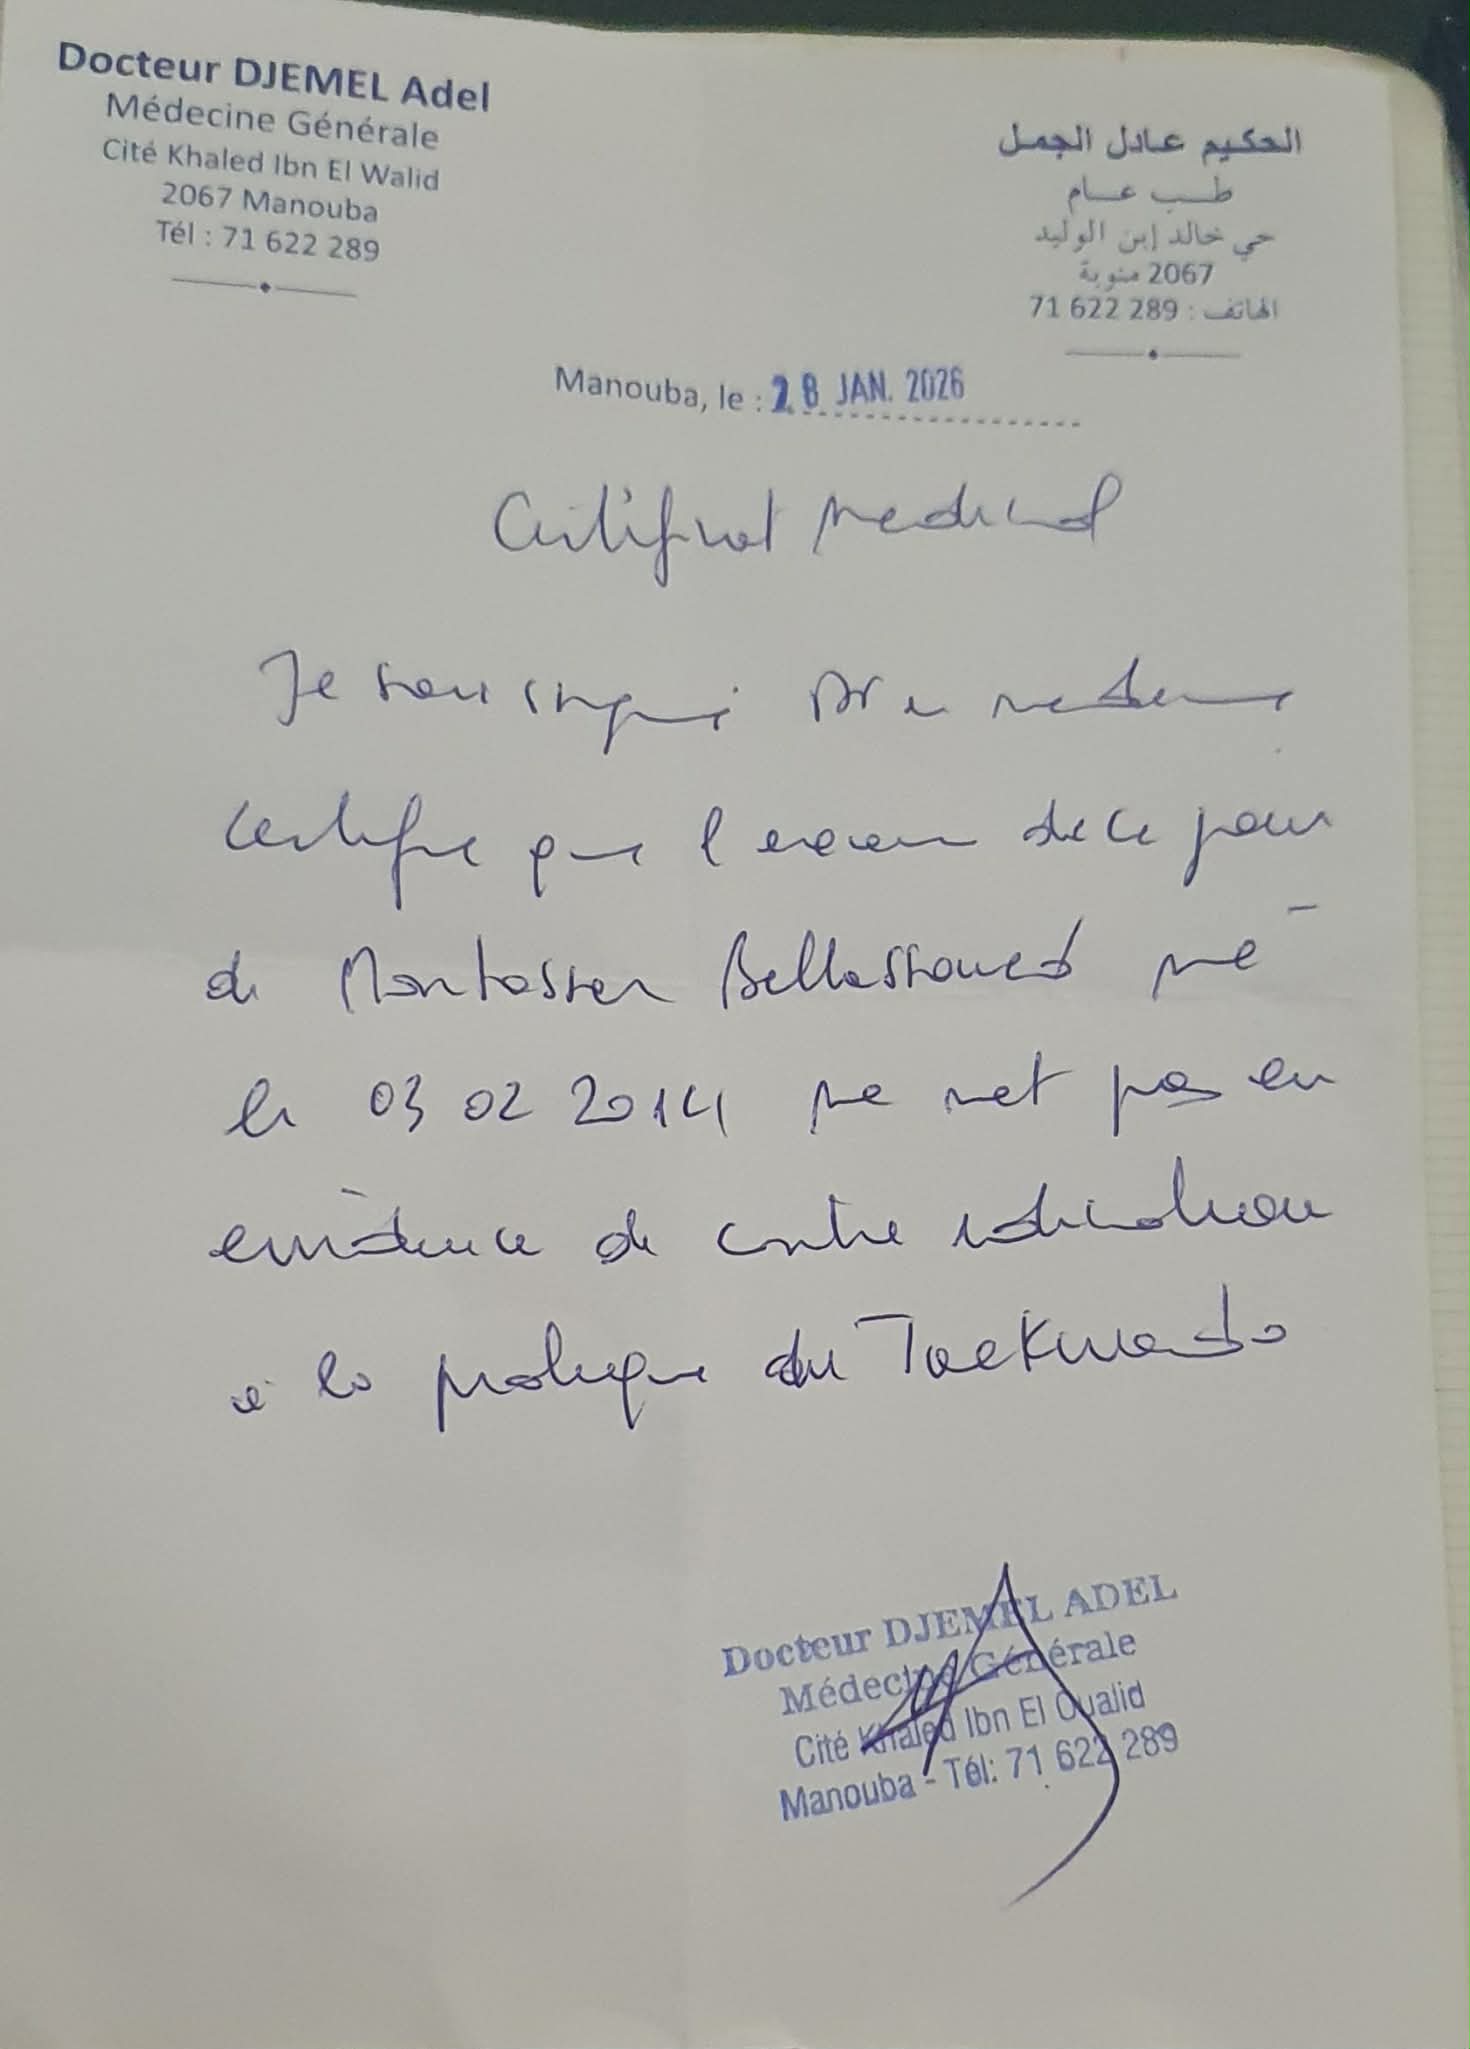 Docteur DJEMEL Adel
Médecine Générale
Cité Khaled Ibn El Walid
2067 Manouba
Tél : 71 622 289
الحكيم عادل الجمل
طب عام
حي خالد إبن الوليد
2067 منوبة
الهاتف : 71 622 289
Manouba, le : 28 JAN. 2026
Certificat Medical
Je soussigné Dr en medecine
certifie que l'examen de ce jour
de Montasser Bellassoued né
le 03 02 2014 ne met pas en
evidence de contre indication
à la pratique du Taekwondo
Docteur DJEMEL ADEL
Médecine Générale
Cité Khaled Ibn El Oualid
Manouba - Tél: 71 622 289